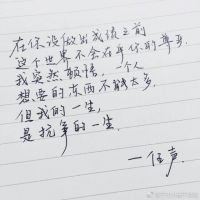 在你没做出成绩之前
这个世界不会在乎你的尊严
我突然顿悟，一个人
想要的东西不能太多
但我的一生，
是抗争的一生.
—任声